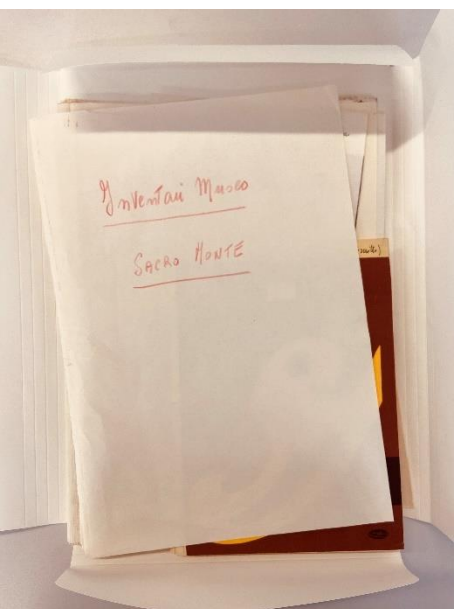 Inventari Museo
SACRO MONTE